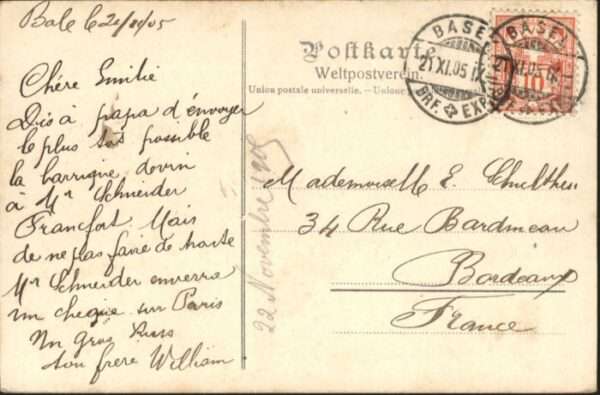 Bale le 21/11/05
Chère Emilie
Dis à papa d'envoyer
le plus tôt possible
la barrique de vin
à Mr Schneider
Francfort Mais
de ne pas faire de traite
Mr Schneider enverra
un cheque sur Paris
Un gros kuss
ton frere William
22 Novembre 1905
Postkarte.
Weltpostverein.
Union postale universelle. — Unione
BASEL
21.XI.05.IX
BRF. EXP.
BASEL
21.XI.05.IX
10
Mademoiselle E. Schulthess
34 Rue Bardineau
Bordeaux
France